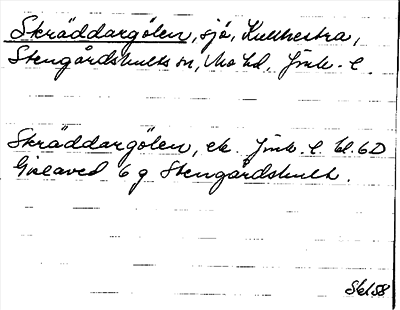 Skräddargölen, sjö, Kulthestra,
Stengårdshults sn, Mo hd, Jönk. l.
Skräddargölen, ek. Jönk. l. bl. 6D
Gislaved 6 g Stengårdshult.
Skl 58